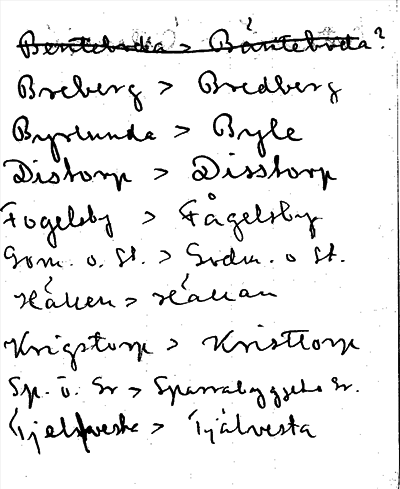 Benteboda > Bänteboda?
Breberg > Bredberg
Byrlunda > Byle
Distorp > Disstorp
Fogelsby > Fågelsby
Gom. o. St. > Godm. o St.
Hâllen > Hâllan
Krigstorp > Kristtorp
Sp. o. Gr >
Tjelsvesta > Tjälvesta